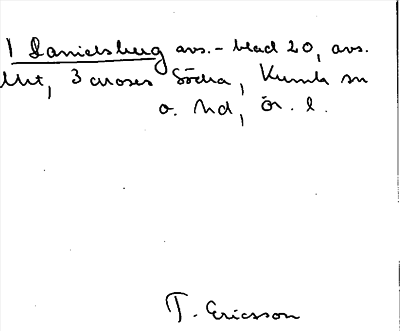 1 Danielsberg avs. - blad 20, avs.
litt, 3 croses Södra, Kumla sn
o. hd, ör. l.
T. Ericsson